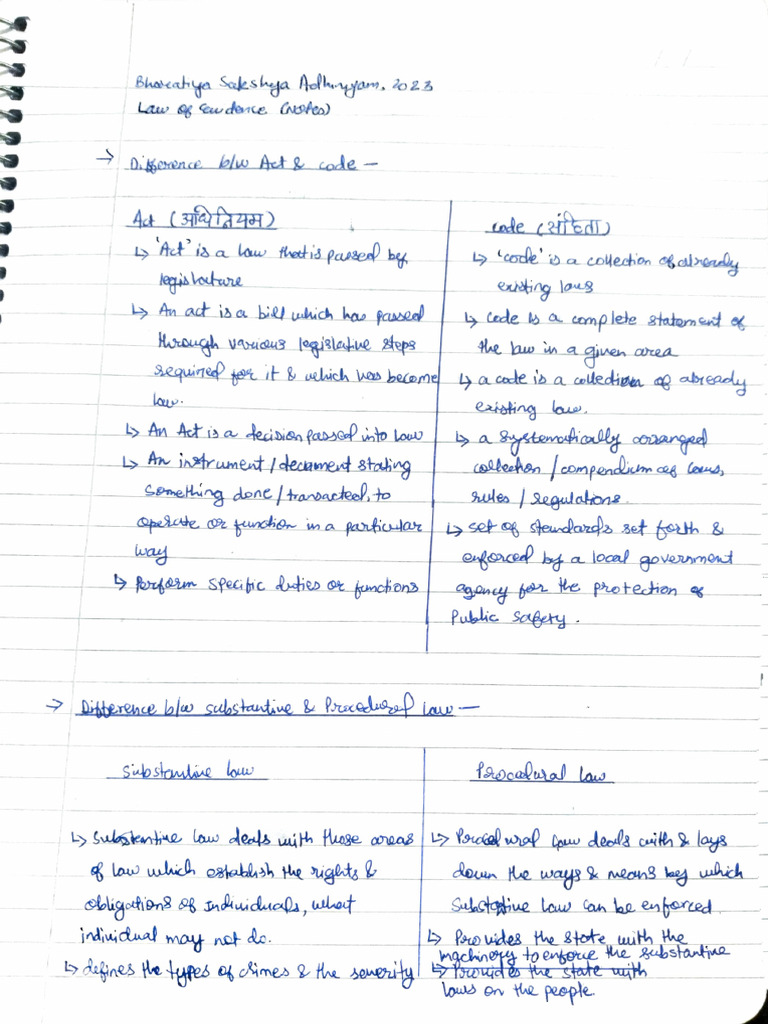 Bharatiya Sakshya Adhiniyam, 2023
Law of Evidence (Notes)
→ Difference b/w Act & code —
Act (अधिनियम)
↳ 'Act' is a law that is passed by
legislature
↳ An act is a bill which has passed
through various legislative steps
required for it & which has become
law.
↳ An Act is a decision passed into law
↳ An instrument / document stating
something done / transacted, to
operate or function in a particular
way
↳ Perform specific duties or functions
code (संहिता)
↳ 'code' is a collection of already
existing laws
↳ code is a complete statement of
the law in a given area
↳ a code is a collection of already
existing law.
↳ a systematically arranged
collection / compendium of laws,
rules / regulations.
↳ set of standards set forth &
enforced by a local government
agency for the protection of
Public Safety.
→ Difference b/w substantive & Procedural law —
Substantive law
↳ Substantive law deals with those areas
of law which establish the rights &
obligations of individuals, what
individual may not do.
↳ defines the types of crimes & the severity
Procedural law
↳ Procedural law deals with & lays
down the ways & means by which
Substantive law can be enforced
↳ Provides the state with the
machinery to enforce the substantive
↳ Provides the state with
laws on the people.